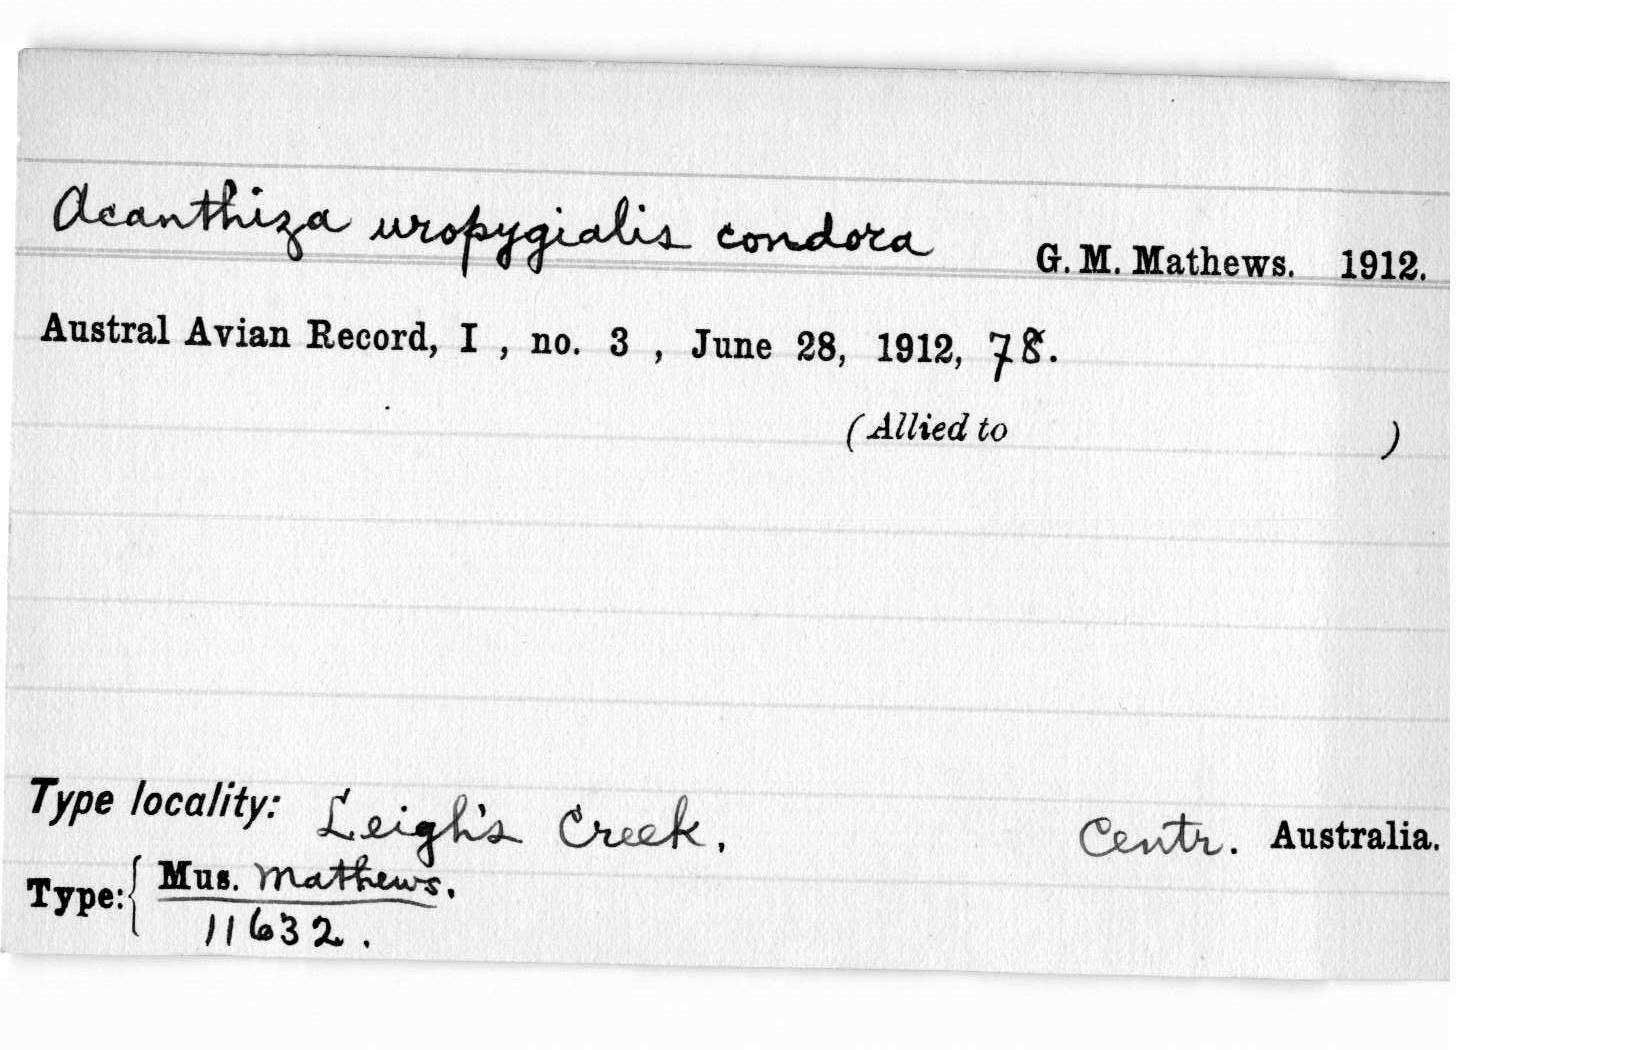 Acanthiza uropygialis condora G. M. Mathews. 1912.
Austral Avian Record, I , no. 3 , June 28, 1912, 78.
(Allied to )
Type locality: Leigh's Creek, Centr. Australia.
Type: { Mus. Mathews.
11632.